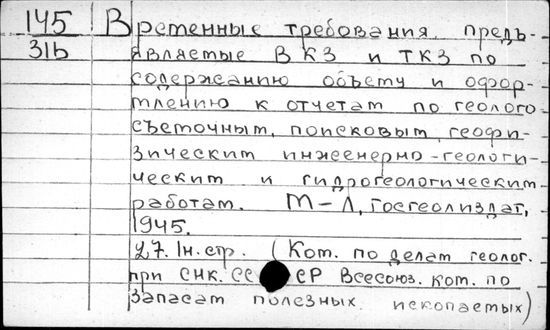 145
31b
Временные требования, предъ-
являемые ВКЗ и ТКЗ по
содержанию объему и офор-
млению к отчетам по геолого
съемочным, поисковым, геофи-
зическим инженерно-геологи-
ческим и гидрогеологическим
работам. М-Л, Госгеолиздат,
1945.
27. 1н. стр. (Ком. по делам геолог.
при СНК. СС СР Всесоюз. ком. по
запасам полезных ископаемых)